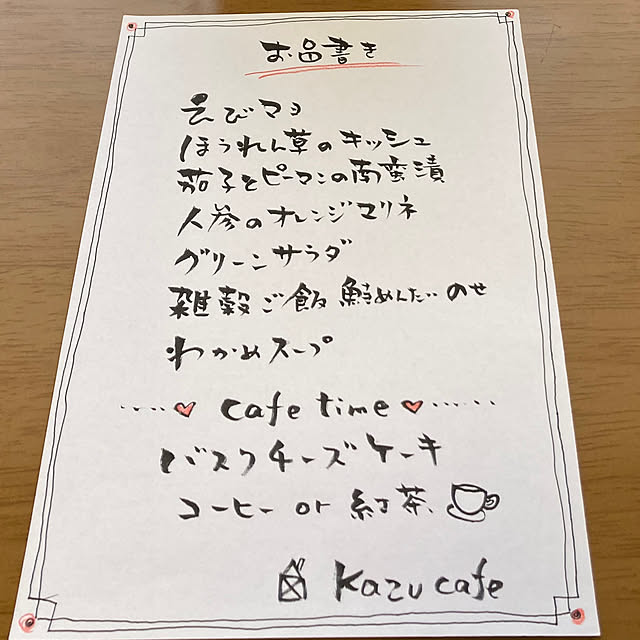 お品書き
えびマヨ
ほうれん草のキッシュ
茄子とピーマンの南蛮漬
人参のオレンジマリネ
グリーンサラダ
雑穀ご飯 鯖めんたいのせ
わかめスープ
cafe time
バスクチーズケーキ
コーヒー or 紅茶
Kazu cafe